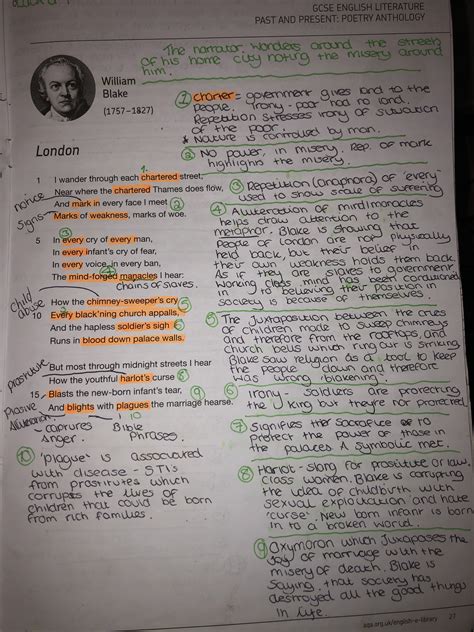 GCSE ENGLISH LITERATURE
PAST AND PRESENT: POETRY ANTHOLOGY
The narrator wonders around the streets
of his home city noting the misery around
him.
William
Blake
(1757–1827)
London
① charter = government gives land to the
people. Irony - poor had no land.
Repetition stresses irony of situation
of the poor.
* Nature is controlled by man.
② No power, in misery. Rep. of mark
highlights the misery.
1.
1 I wander through each chartered street,
Near where the chartered Thames does flow,
notice
And mark in every face I meet ②
signs
Marks of weakness, marks of woe.
③
5 In every cry of every man,
In every infant's cry of fear,
In every voice, in every ban,
The mind-forged manacles I hear:
chains of slaves.
③ Repetition (anaphora) of 'every'
used to show scale of suffering
④ Alliteration of mind/manacles
helps draw attention to the
metaphor. Blake is showing that
people of London are not physically
held back, but their belief in
their own weakness holds them back.
As if they are slaves to government
working class mind has been conditioned
in to believing their position in
society is because of themselves
child
abuse
How the chimney-sweeper's cry
10 Every black'ning church appalls,
And the hapless soldier's sigh ⑥
Runs in blood down palace walls.
⑤ The juxtaposition between the cries
of children made to sweep chimneys
and therefore from the rooftops, and
church bells which ring our is striking.
Blake saw religion as a tool to keep
the people down and therefore
was wrong 'blakening'.
prostitute
But most through midnight streets I hear
How the youthful harlot's curse ⑧
15 Blasts the new-born infant's tear,
And blights with plagues the marriage hearse.
⑨
10
Plosive
Alliteration
captures
Anger.
Bible
Phrases.
⑥ Irony - soldiers are protecting
the king but they're not protected.
⑦ Signifies the sacrifice
protect the power of those in
the palaces. A symbolic met.
⑧ Harlot - slang for prostitute or low
class women. Blake is corrupting
the idea of childbirth with
sexual exploitation and hate
'curse'. New born infant is born
in to a broken world.
⑨ Oxymoron which juxtaposes the
joy of marriage with the
misery of death. Blake is
saying, that society has
destroyed all the good things
in life.
⑩ 'plague' is associated
with disease - STI's
from prostitutes which
corrupts the lives of
children that could be born
from rich families.
aqa.org.uk/english-e-library 27